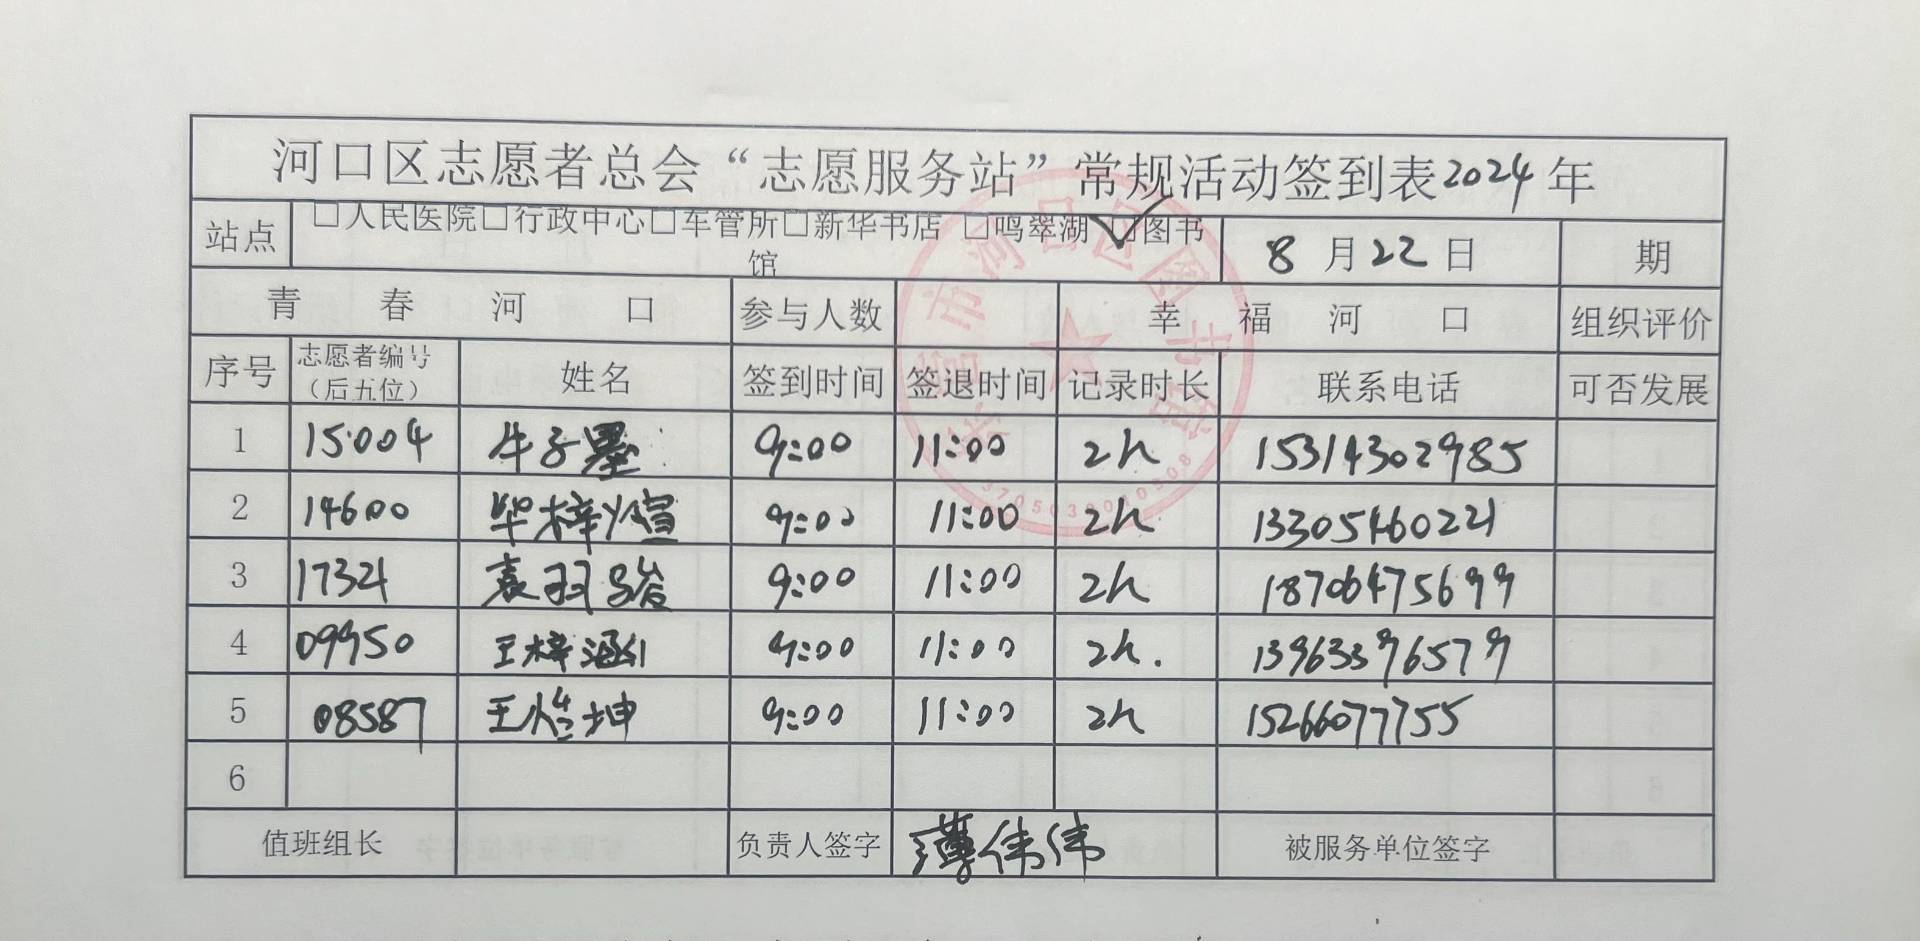 河口区志愿者总会“志愿服务站”常规活动签到表2024年
站点 □人民医院□行政中心□车管所□新华书店 □鸣翠湖□图书馆 8月22日 期
青春河口 参与人数 幸福河口 组织评价
序号 志愿者编号（后五位） 姓名 签到时间 签退时间 记录时长 联系电话 可否发展
1 15004 牛子墨 9:00 11:00 2h 15314302985
2 14600 毕梓煊 9:00 11:00 2h 13305460221
3 17321 袁羽骀 9:00 11:00 2h 18706475699
4 09950 王梓涵 9:00 11:00 2h. 13963396579
5 08587 王怡坤 9:00 11:00 2h 15266077755
6
值班组长 负责人签字 薄伟伟 被服务单位签字
东营市河口区图书馆